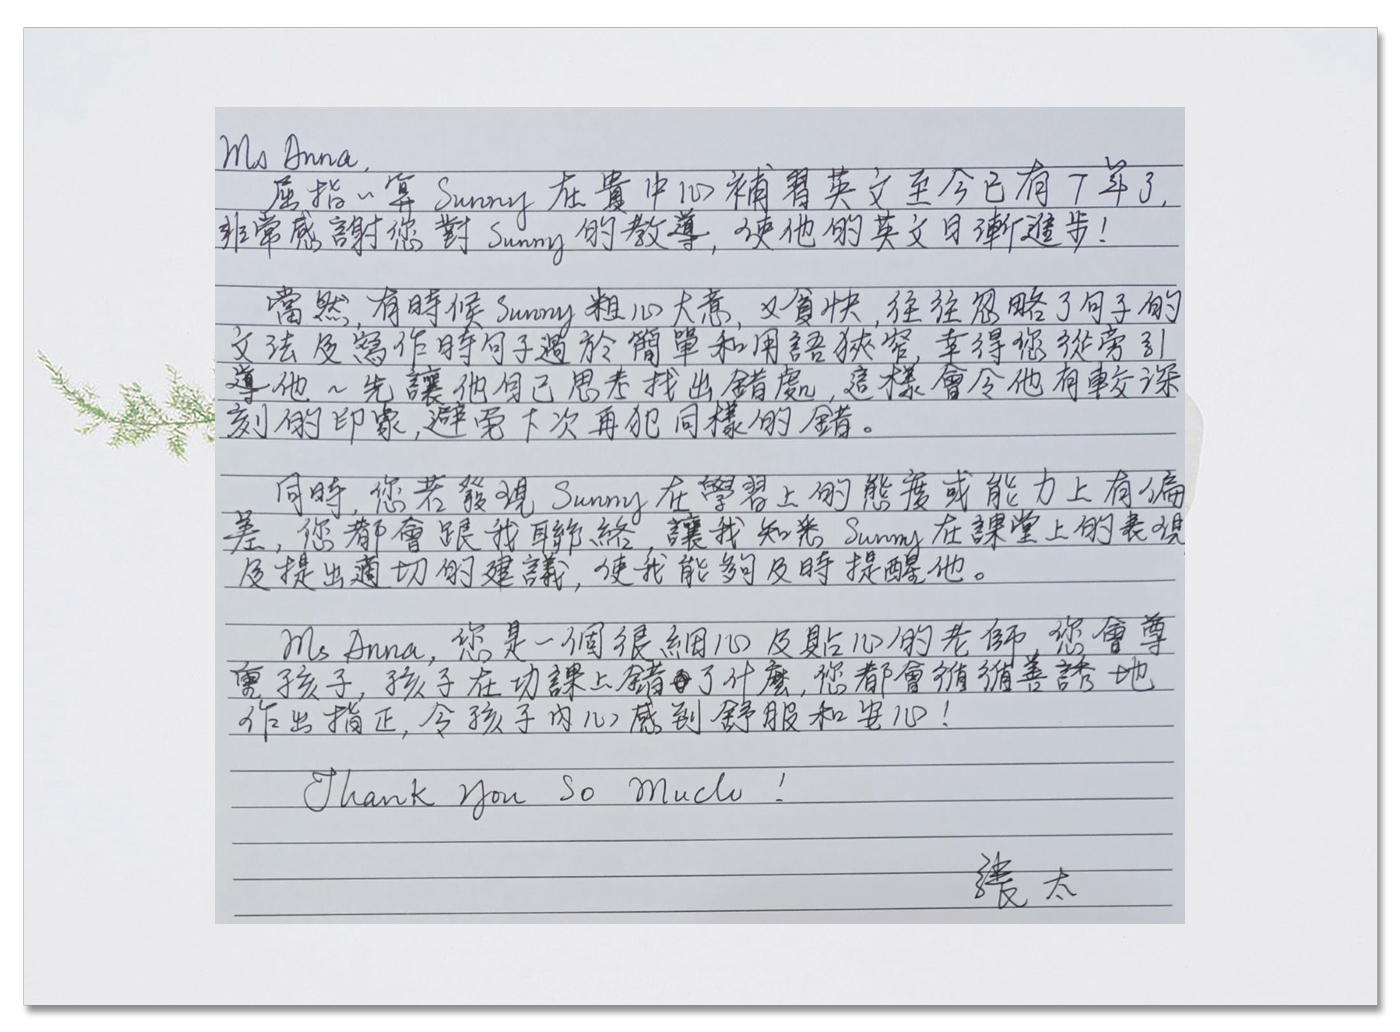 Ms Anna,
屈指一算 Sunny 在貴中心補習英文至今已有7年了,
非常感謝您對 Sunny 的教導, 使他的英文日漸進步!
當然, 有時候 Sunny 粗心大意, 又貪快, 往往忽略了句子的
文法及寫作時句子過於簡單和用語狹窄, 幸得您從旁引
導他~先讓他自己思考找出錯處, 這樣會令他有較深
刻的印象, 避免下次再犯同樣的錯。
同時, 您若發現 Sunny 在學習上的態度或能力上有偏
差, 您都會跟我聯絡, 讓我知悉 Sunny 在課堂上的表現
及提出適切的建議, 使我能夠及時提醒他。
Ms Anna, 您是一個很細心及貼心的老師 您會尊
重孩子, 孩子在功課上錯了什麼, 您都會循循善誘地
作出指正, 令孩子內心感到舒服和安心!
Thank you so much!
張太